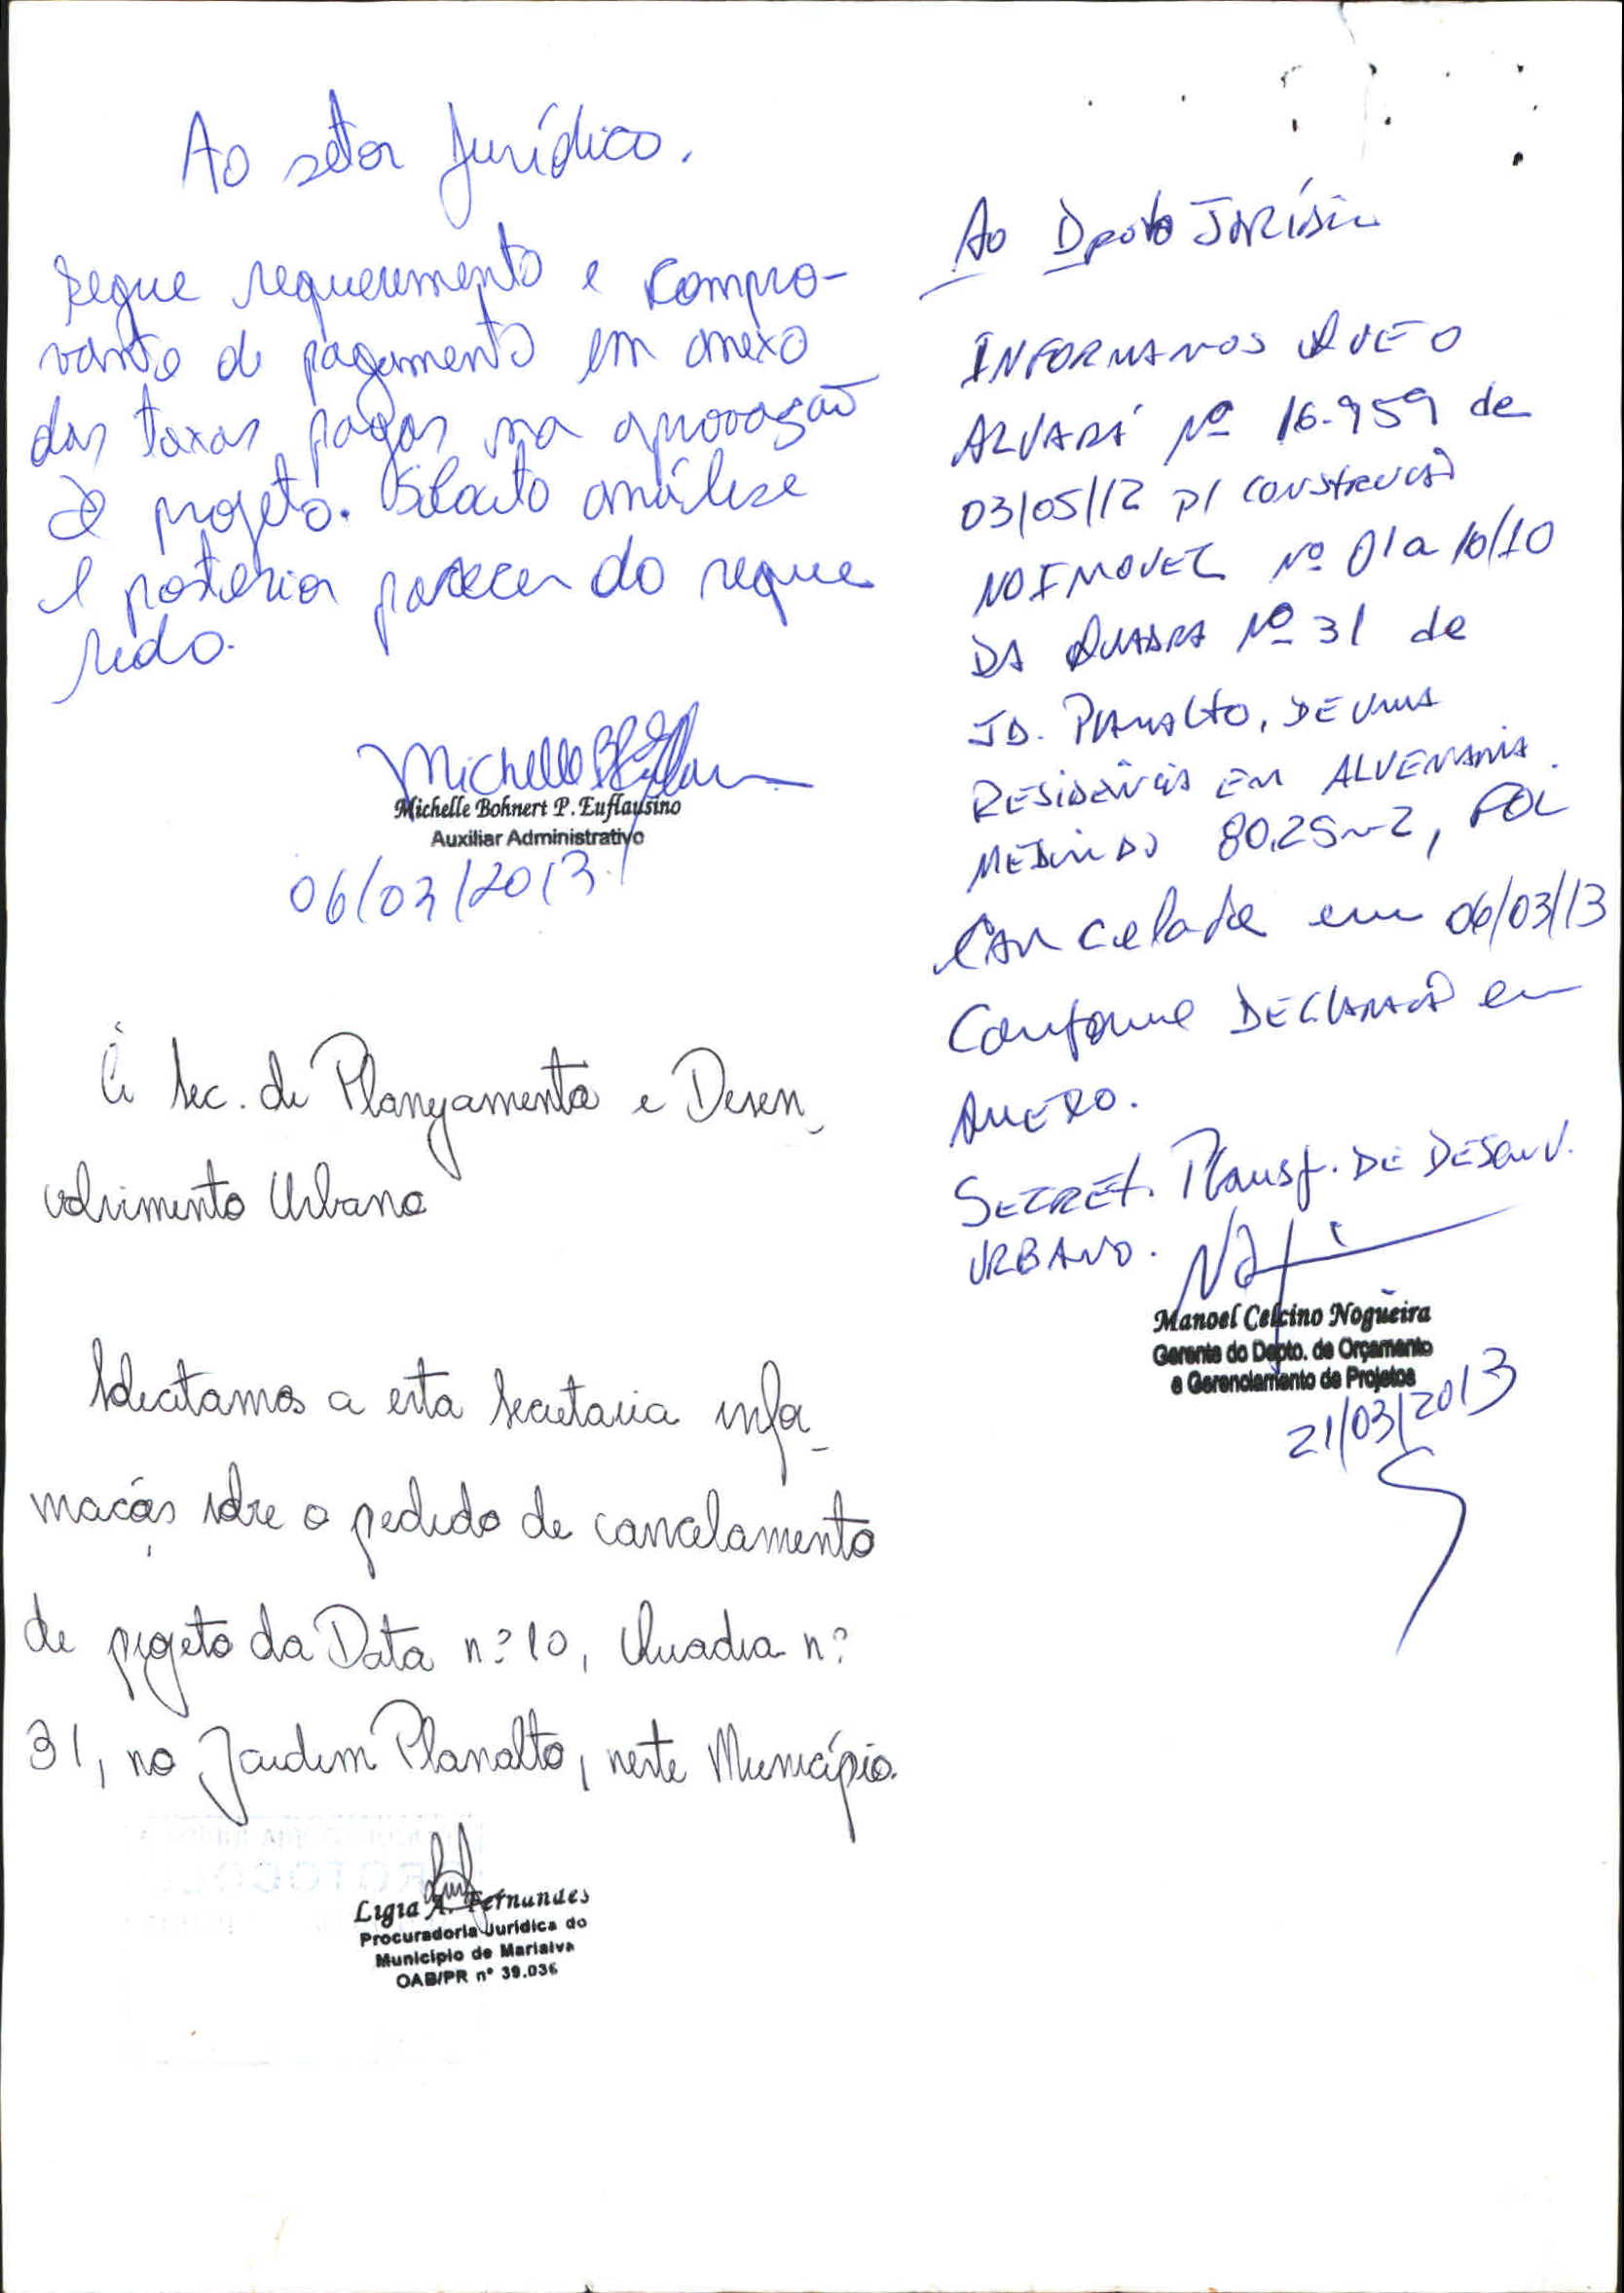 Ao setor Jurídico.
Segue requerimento e compro-
vante de pagamento em anexo
das taxas pagas na aprovação
de projeto. Solicito análise
e posterior parecer do reque
rido.
Michelle B
Michelle Bohnert P. Euflausino
Auxiliar Administrativo
06/03/2013
À Sec. de Planejamento e Desen_
volvimento Urbano
Solicitamos a esta Secretaria infor_
mações sobre o pedido de cancelamento
de projeto da Data nº 10, Quadra nº
31, no Jardim Planalto, neste Município.
Ligia A. Fernandes
Procuradoria Jurídica do
Município de Marialva
OAB/PR nº 39.036
PROTOCOL
Ao Dpoto JURÍDICO
INFORMAMOS QUE O
ALVARÁ Nº 16.959 de
03/05/12 p/ construção
NO IMOVEL Nº 01a 10/10
DA QUADRA Nº 31 de
JD. PLANALTO, DE UMA
RESIDÊNCIA EM ALVENARIA
MEDINDO 80,25m2, FOI
CANcelada em 06/03/13
Conforme DECLARAÇÃO em
ANEXO.
SECRET. Planej. DE DESENV.
URBANO.
Manoel Celcino Nogueira
Gerente do Depto. de Orçamento
e Gerenciamento de Projetos
21/03/2013